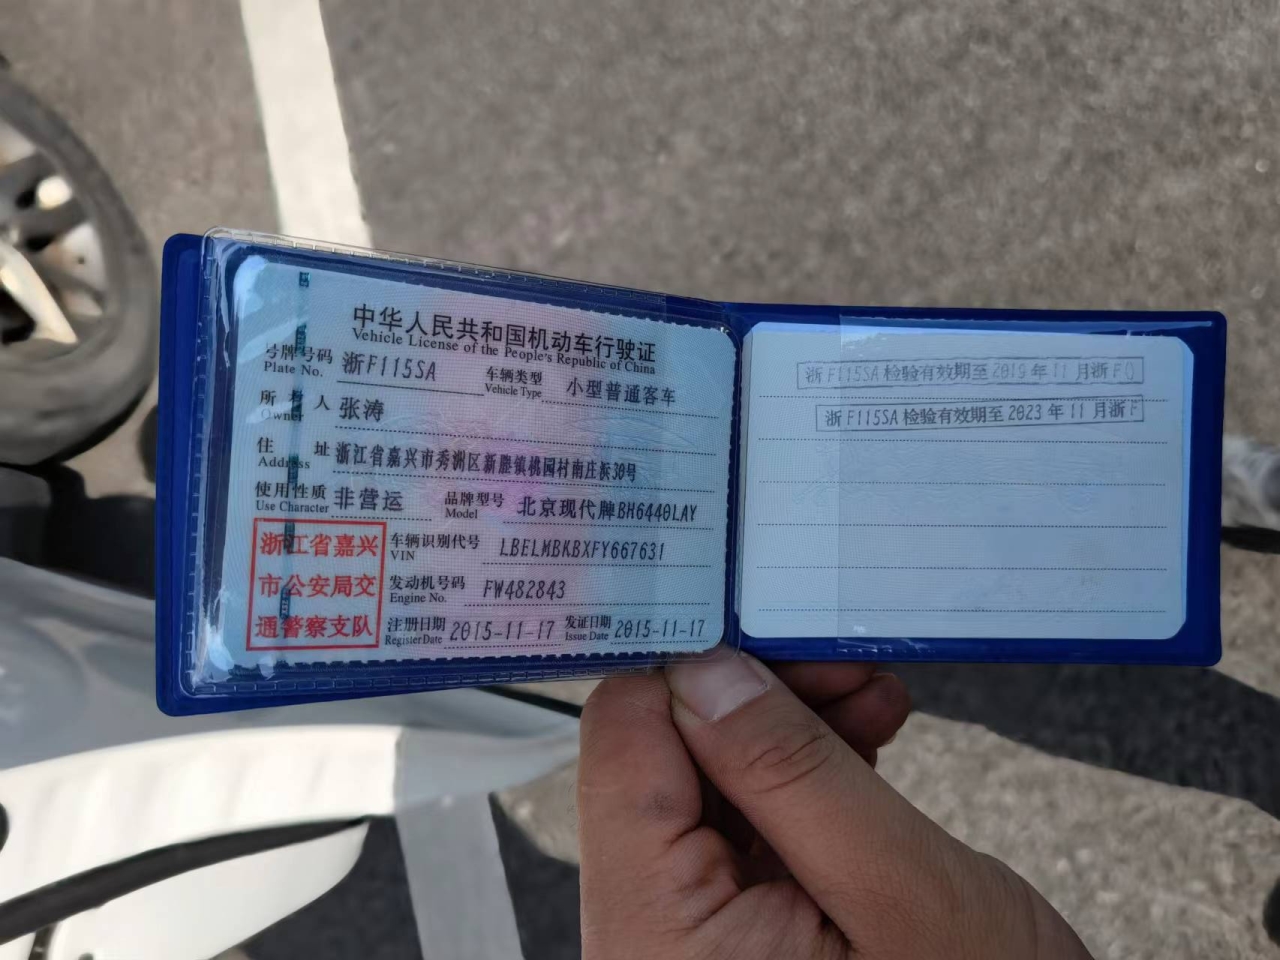 中华人民共和国机动车行驶证
Vehicle License of the People's Republic of China
号牌号码 浙F115SA 车辆类型 小型普通客车
Plate No. Vehicle Type
所 人 张涛
Owner
住 址 浙江省嘉兴市秀洲区新塍镇桃园村南庄浜38号
Address
使用性质 非营运 品牌型号 北京现代牌BH6440LAY
Use Character Model
浙江省嘉兴
市公安局交
通警察支队
车辆识别代号 LBELMBKBXFY667631
VIN
发动机号码 FW482843
Engine No.
注册日期 2015-11-17 发证日期 2015-11-17
Register Date Issue Date
浙F115SA检验有效期至2019年11月浙F
浙F115SA检验有效期至2023年11月浙F